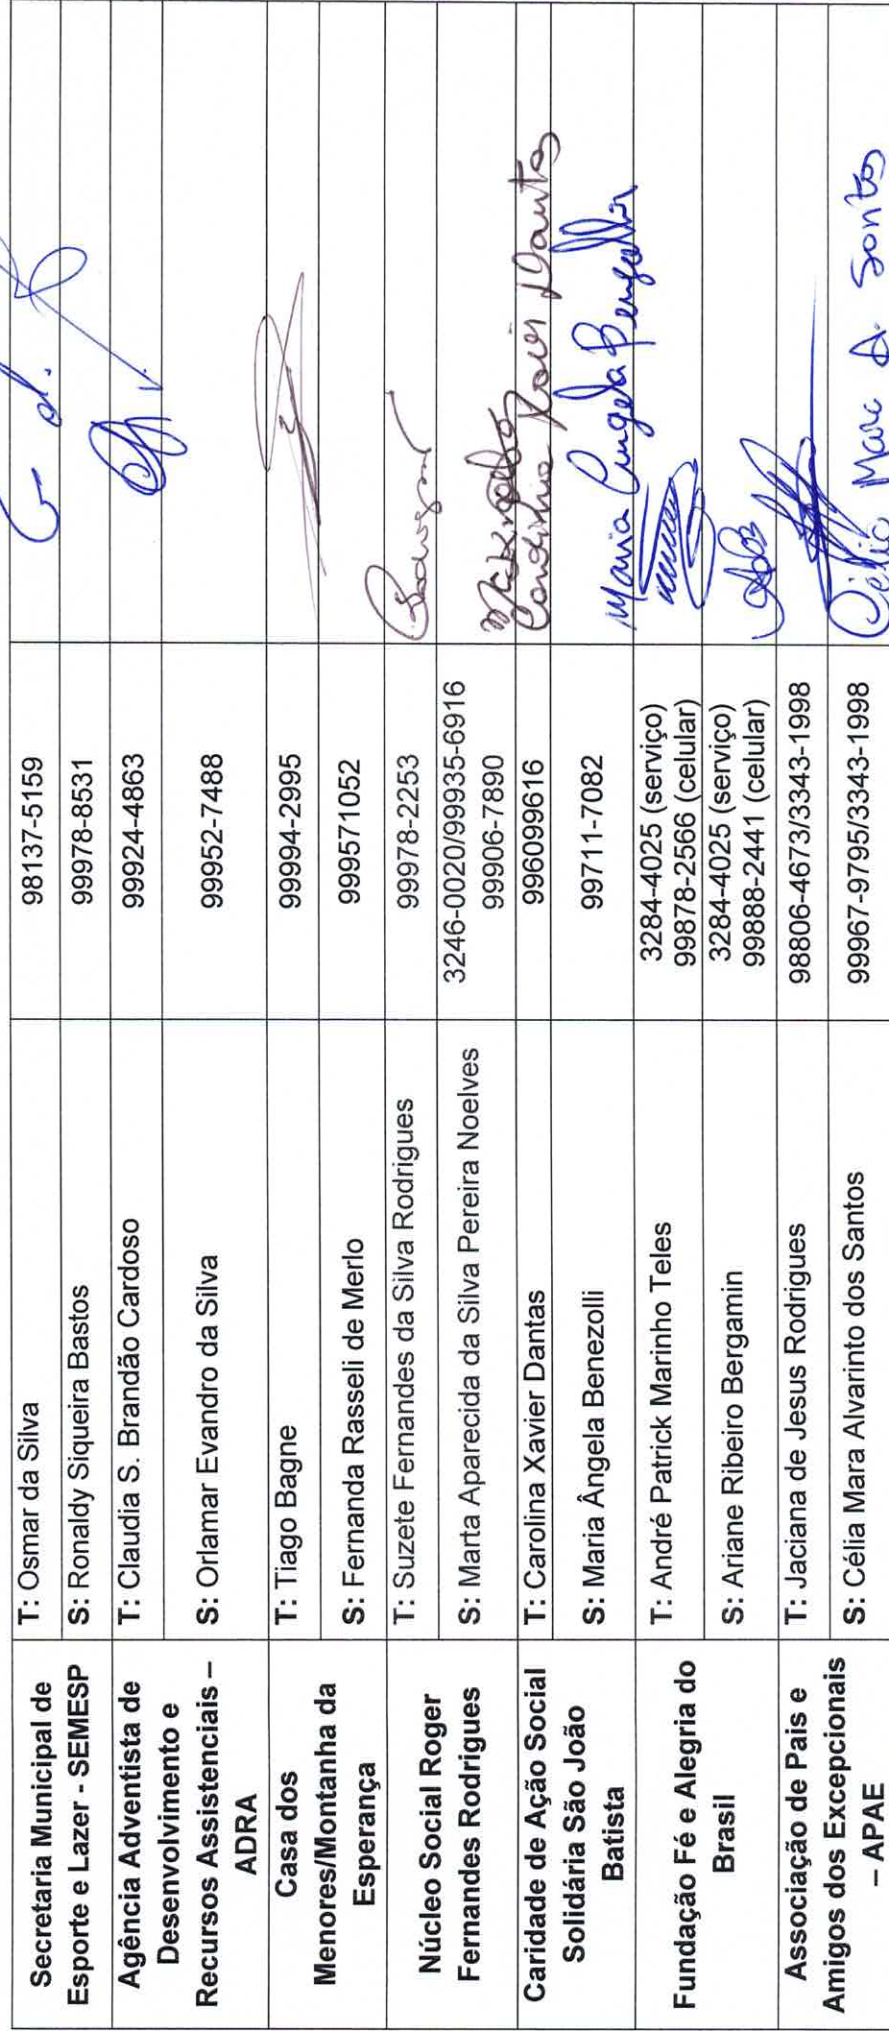 Secretaria Municipal de
Esporte e Lazer - SEMESP
T: Osmar da Silva
98137-5159
S: Ronaldy Siqueira Bastos
99978-8531
Agência Adventista de
Desenvolvimento e
Recursos Assistenciais –
ADRA
T: Claudia S. Brandão Cardoso
99924-4863
S: Orlamar Evandro da Silva
99952-7488
Casa dos
Menores/Montanha da
Esperança
T: Tiago Bagne
99994-2995
S: Fernanda Rasseli de Merlo
999571052
Núcleo Social Roger
Fernandes Rodrigues
T: Suzete Fernandes da Silva Rodrigues
99978-2253
S: Marta Aparecida da Silva Pereira Noelves
3246-0020/99935-6916
99906-7890
Caridade de Ação Social
Solidária São João
Batista
T: Carolina Xavier Dantas
996099616
Carolina Xavier Dantas
S: Maria Ângela Benezolli
99711-7082
Maria Angela Benezolli
Fundação Fé e Alegria do
Brasil
T: André Patrick Marinho Teles
3284-4025 (serviço)
99878-2566 (celular)
S: Ariane Ribeiro Bergamin
3284-4025 (serviço)
99888-2441 (celular)
Associação de Pais e
Amigos dos Excepcionais
– APAE
T: Jaciana de Jesus Rodrigues
98806-4673/3343-1998
S: Célia Mara Alvarinto dos Santos
99967-9795/3343-1998
Célia Mara A. Santos